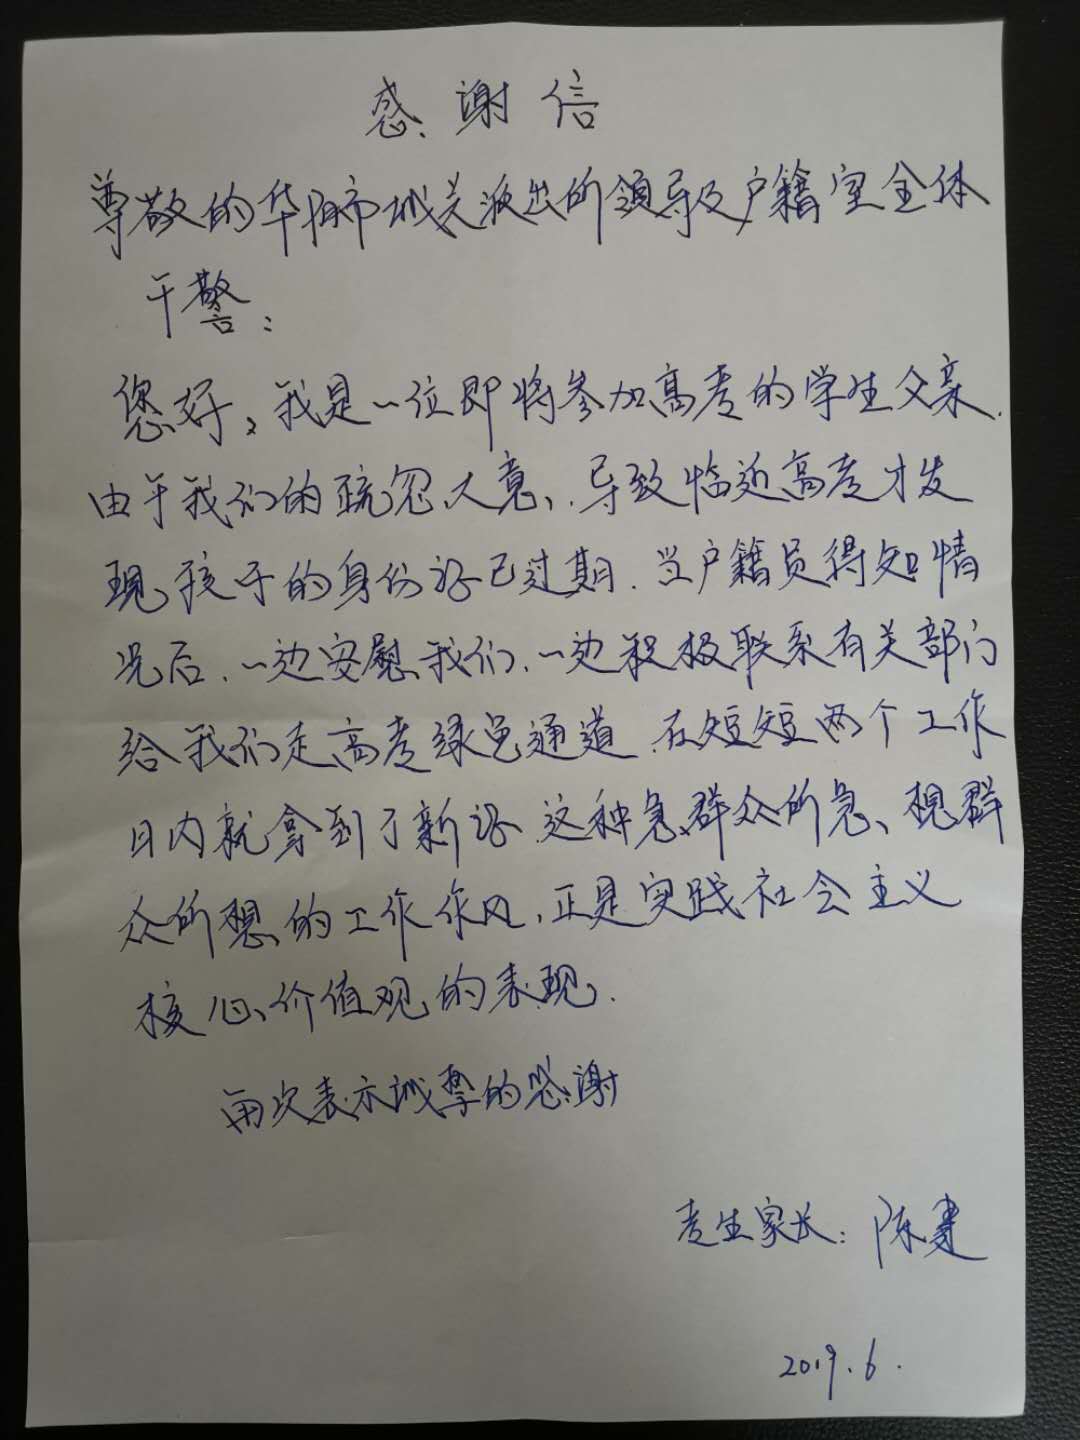 感谢信
尊敬的华阴市城关派出所领导及户籍室全体
干警:
您好,我是一位即将参加高考的学生父亲.
由于我们的疏忽大意、.导致临近高考才发
现孩子的身份证已过期.当户籍员得知情
况后.一边安慰我们.一边积极联系有关部门
给我们走高考绿色通道.在短短两个工作
日内就拿到了新证.这种急群众所急、想群
众所想的工作作风,正是实践社会主义
核心价值观的表现.
再次表示诚挚的感谢
考生家长:陈建
2019.6.